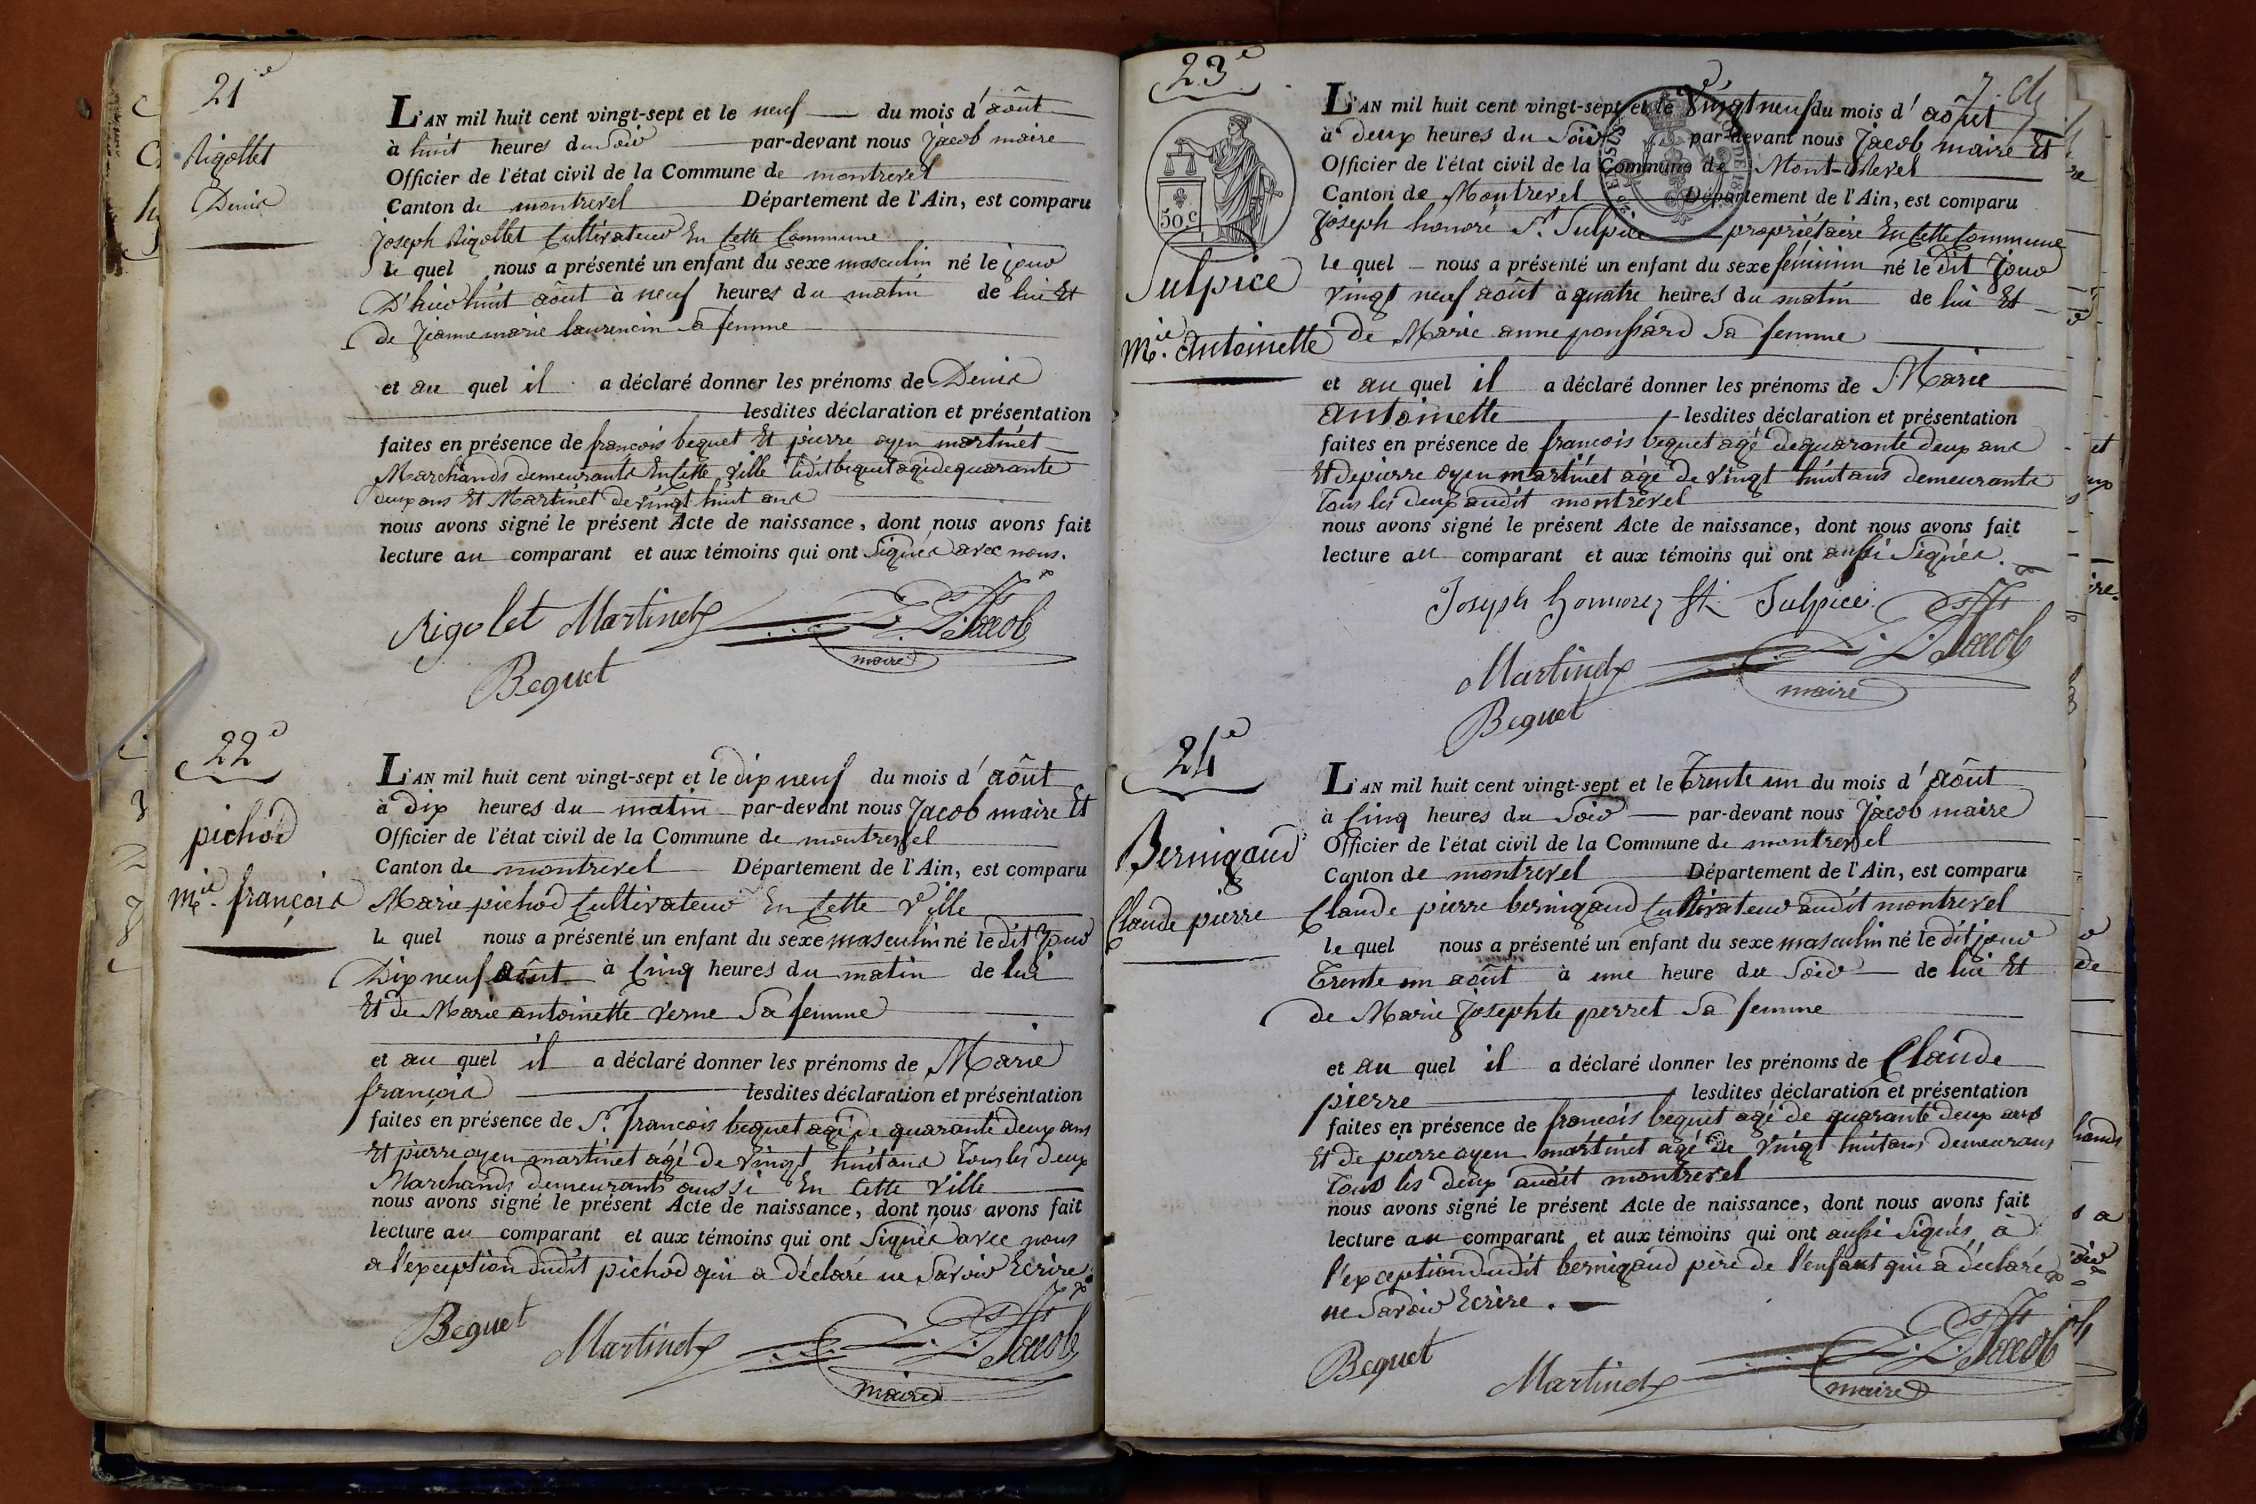 21e
Rigollet
Denis
L'AN mil huit cent vingt-sept et le neuf du mois d'août
à huit heures du soir par-devant nous Jacob maire
Officier de l'état civil de la Commune de montrevel
Canton de montrevel Département de l'Ain, est comparu
Joseph Rigollet Cultivateur En Cette Commune
le quel nous a présenté un enfant du sexe masculin né le jour
D'hier huit août à neuf heures du matin de lui Et
de Jeanne marie laurencin sa femme
et au quel il a déclaré donner les prénoms de Denis
lesdites déclaration et présentation
faites en présence de françois bequet Et pierre ayen martinet
Marchands demeurants En Cette ville ledit bequet agé de quarante
deux ans Et Martinet de vingt huit ans
nous avons signé le présent Acte de naissance, dont nous avons fait
lecture au comparant et aux témoins qui ont signés avec nous.
Rigolet Martinet Jacob
maire
Bequet
22e
pichod
Mie. françois
L'AN mil huit cent vingt-sept et le dix neuf du mois d'août
à dix heures du matin par-devant nous Jacob maire Et
Officier de l'état civil de la Commune de montrevel
Canton de montrevel Département de l'Ain, est comparu
Marie pichod Cultivateur En Cette Ville
le quel nous a présenté un enfant du sexe masculin né le dit Jour
Dix neuf août à Cinq heures du matin de lui
Et de Marie antoinette Verne Sa femme
et au quel il a déclaré donner les prénoms de Marie
françois lesdites déclaration et présentation
faites en présence de Sr. françois bequet agé de quarante deux ans
Et pierre ayen martinet agé de vingt huit ans Tous les deux
Marchands demeurants aussi En Cette Ville
nous avons signé le présent Acte de naissance, dont nous avons fait
lecture au comparant et aux témoins qui ont signés avec nous
a l'exception dudit pichod qui a déclaré ne savoir Ecrire.
Bequet Martinet Jacob
maire
23e
50 c
St Sulpice
Mie. Antoinette
L'AN mil huit cent vingt-sept et le Vingt neuf du mois d'août
à deux heures du Soir par-devant nous Jacob maire Et
Officier de l'état civil de la Commune de Mont-Revel
Canton de Montrevel Département de l'Ain, est comparu
Joseph honoré St. Sulpice propriétaire En Cette Commune
le quel nous a présenté un enfant du sexe féminin né le dit Jour
vingt neuf août à quatre heures du matin de lui Et
de Marie anne ponsard Sa femme
et au quel il a déclaré donner les prénoms de Marie
antoinette lesdites déclaration et présentation
faites en présence de francois bequet agé de quarante deux ans
Et de pierre ayen martinet agé de vingt huit ans demeurants
Tous les deux audit montrevel
nous avons signé le présent Acte de naissance, dont nous avons fait
lecture au comparant et aux témoins qui ont aussi Signés.
Joseph honnorez St Sulpice
Jacob
Martinet
maire
Bequet
24e
Bernigaud
Claude pierre
L'AN mil huit cent vingt-sept et le Trente un du mois d'août
à Cinq heures du Soir par-devant nous Jacob maire
Officier de l'état civil de la Commune de montrevel
Canton de montrevel Département de l'Ain, est comparu
Claude pierre bernigaud Cultivateur audit montrevel
le quel nous a présenté un enfant du sexe masculin né le dit jour
Trente un août à une heure du Soir de lui Et
de Marie Josephte perret Sa femme
et au quel il a déclaré donner les prénoms de Claude
pierre lesdites déclaration et présentation
faites en présence de francois bequet agé de quarante deux ans
Et de pierre ayen martinet agé de vingt huit ans demeurans
Tous les deux audit montrevel
nous avons signé le présent Acte de naissance, dont nous avons fait
lecture au comparant et aux témoins qui ont aussi signés, à
l'exception dudit bernigaud père de l'enfant qui a déclaré
ne savoir Ecrire.
Bequet Martinet Jacob
maire